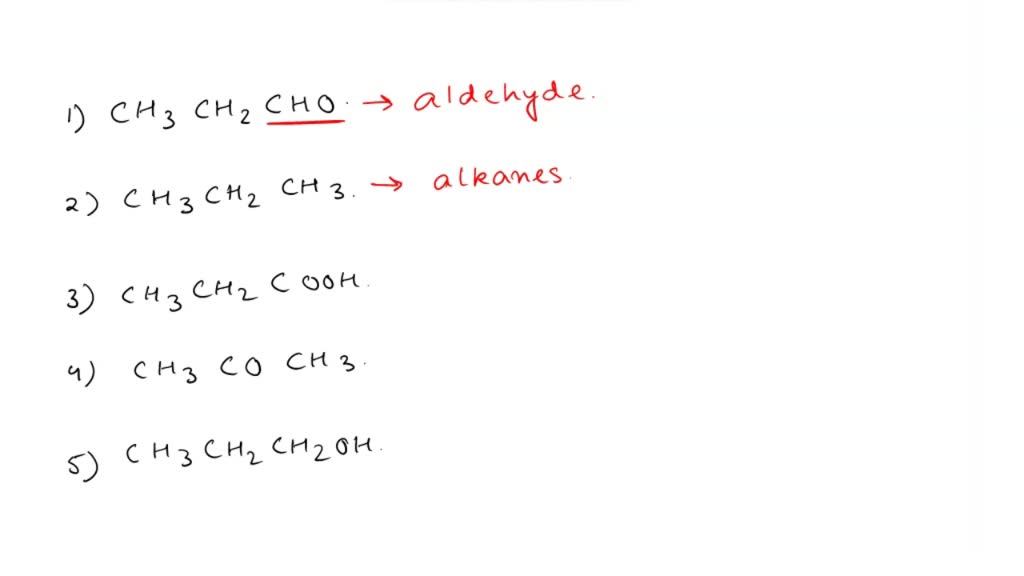 1) CH3 CH2 CHO. → aldehyde.
2) CH3 CH2 CH3. → alkanes.
3) CH3 CH2 COOH.
4) CH3 CO CH3.
5) CH3 CH2 CH2 OH.